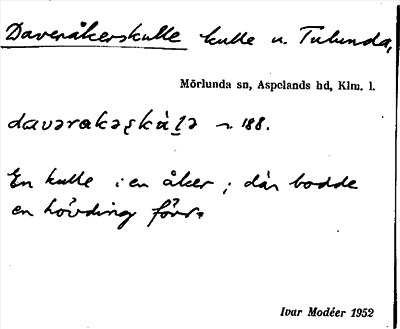 Daveråkerskulle kulle u. Tulunda,
Mörlunda sn, Aspelands hd, Klm. l.
davərakəʂkùl̠ə ~ 188.
En kulle i en åker; där bodde
en hövding förr.
Ivar Modéer 1952